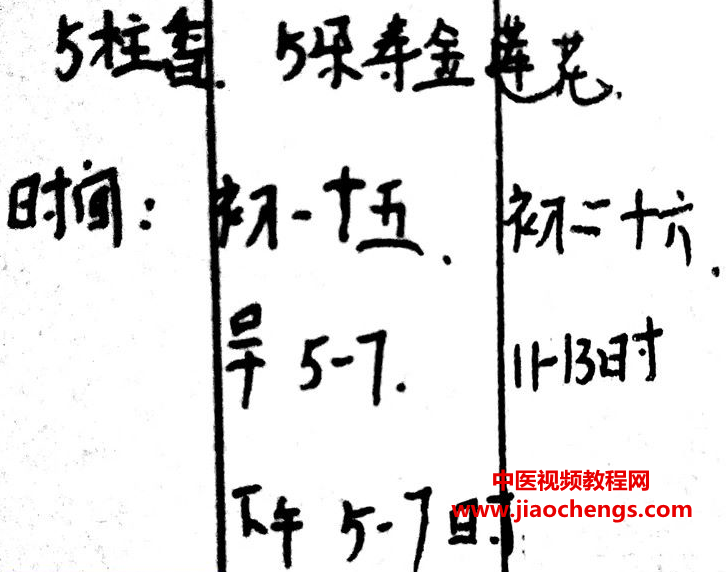 5柱香. 5朵寿金莲花.
时间: 初一十五. 初二十六.
早 5-7. 11-13时
下午 5-7时
中医视频教程网
www.jiaochengs.com